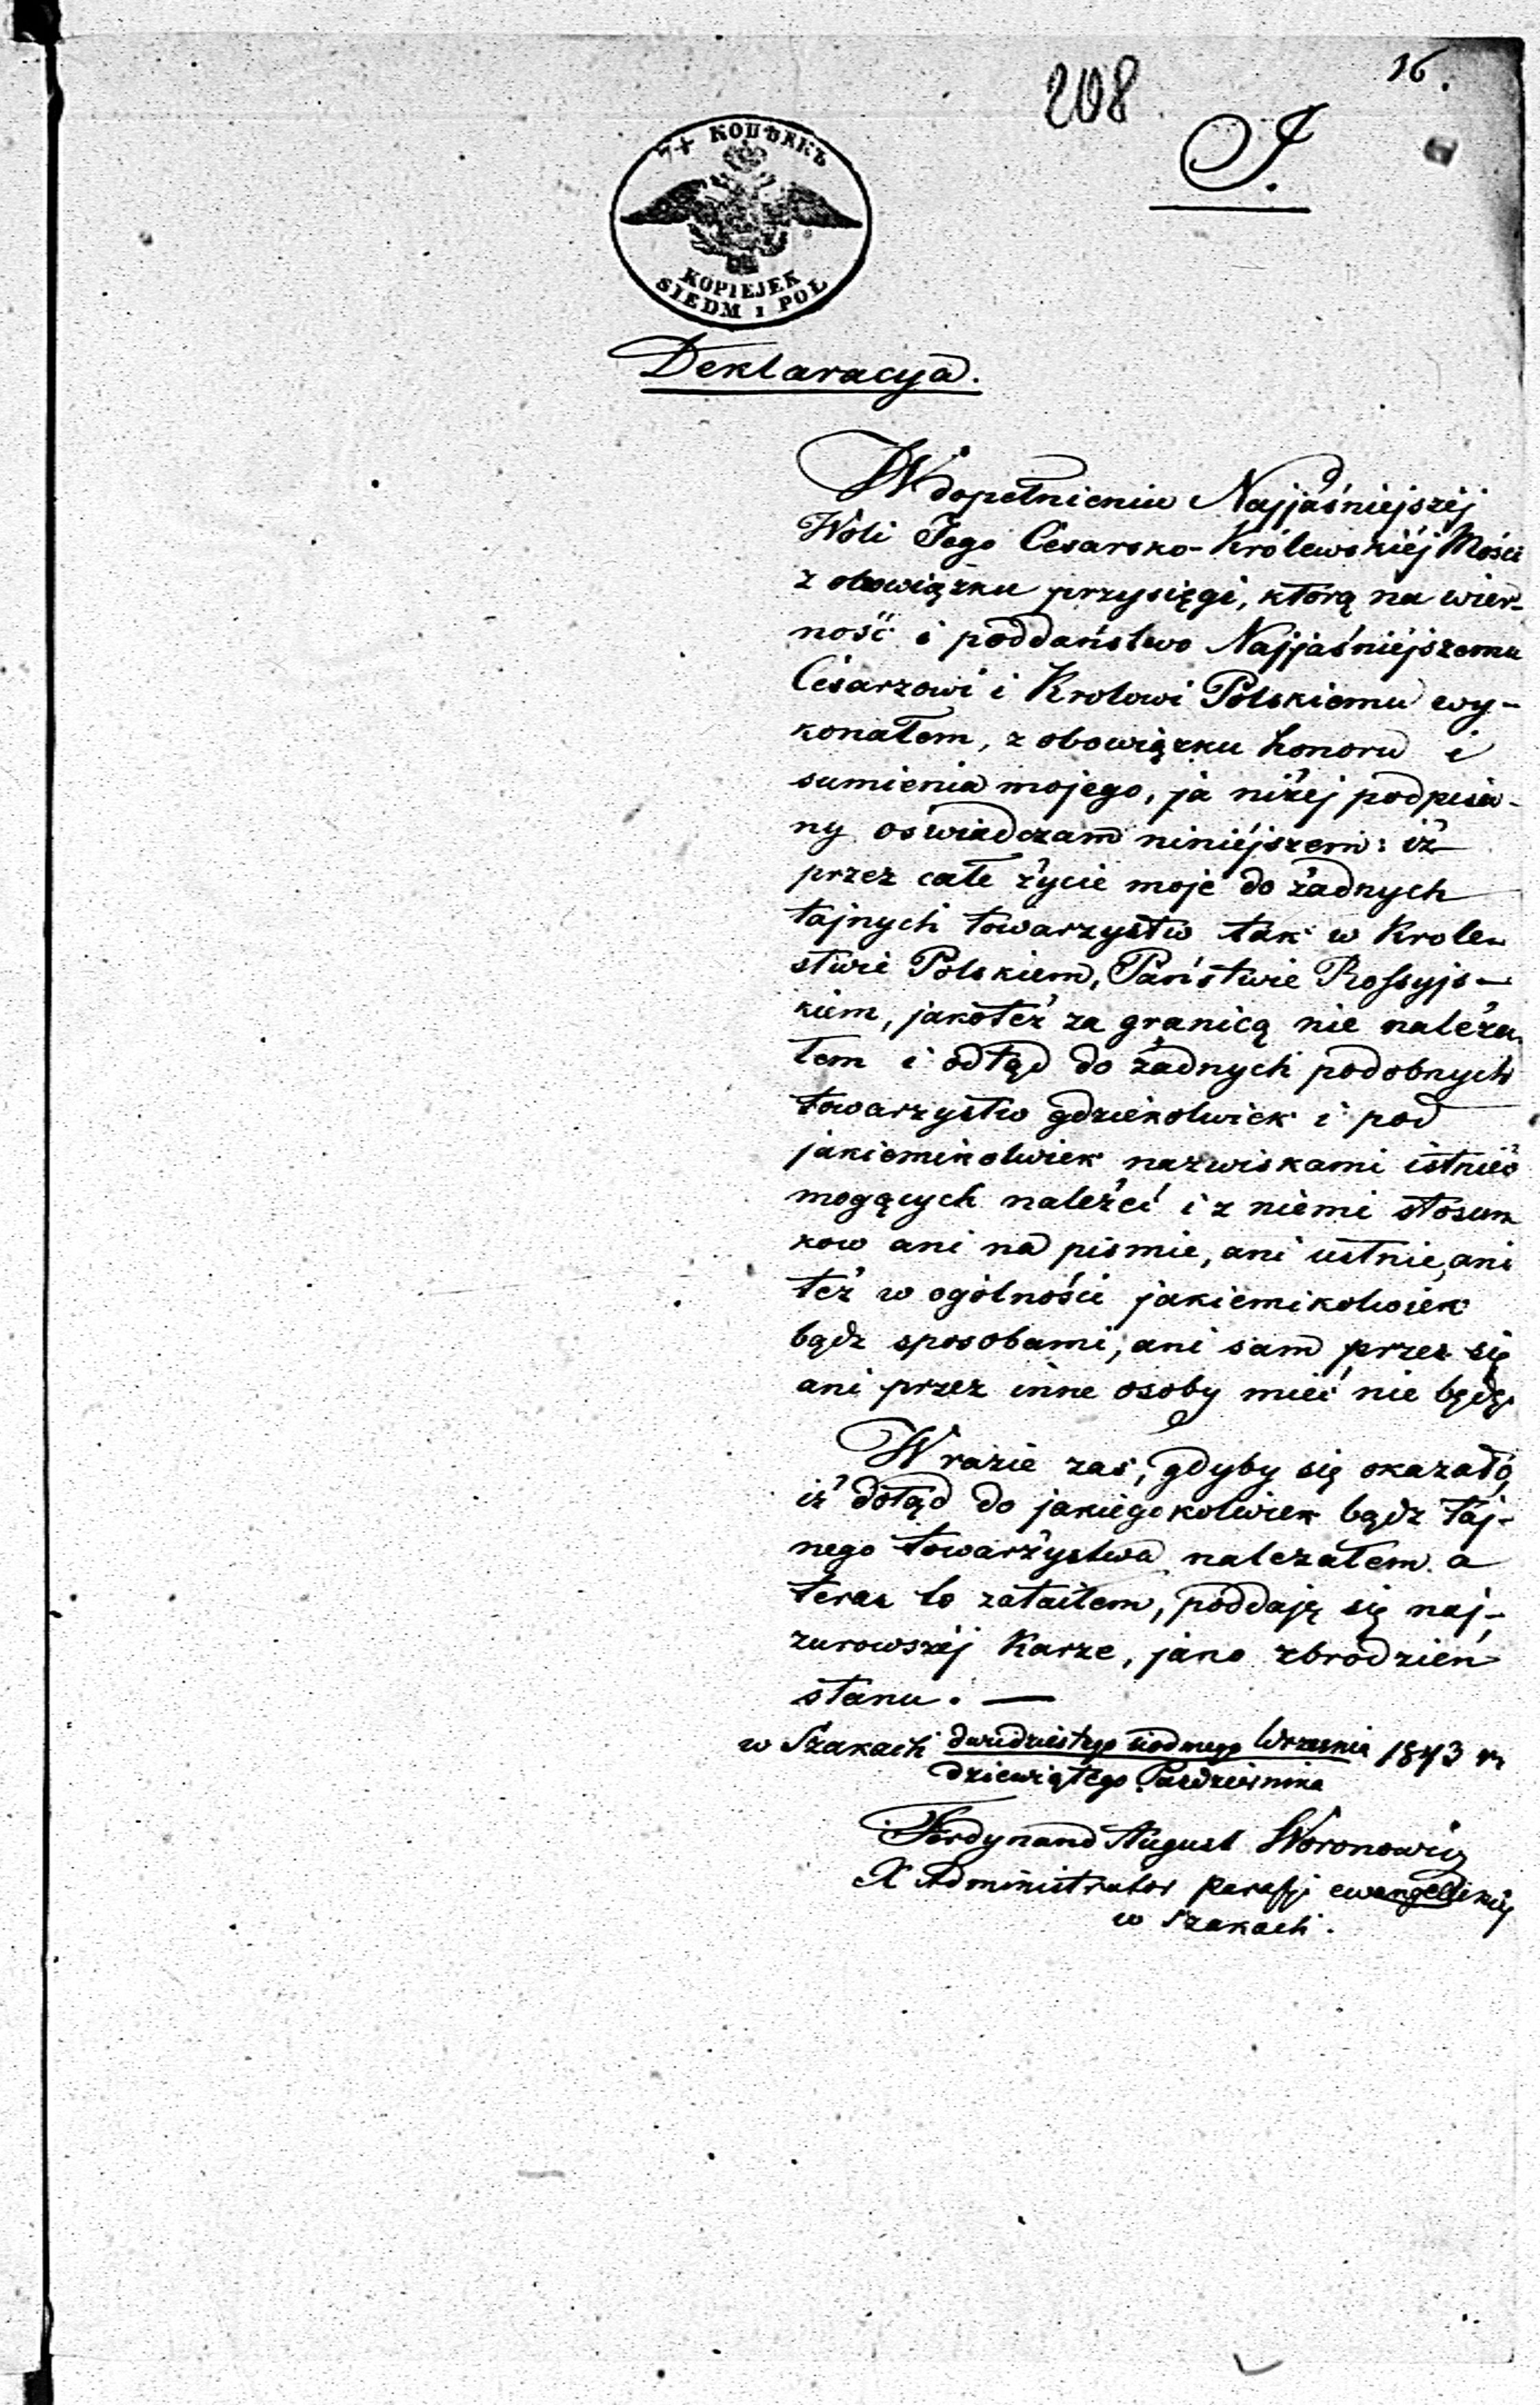 16.
208
J.
7½ КОПѢЕКЪ
KOPIEJEK
SIEDM I PÓŁ
Deklaracya.
W dopełnieniu Najjaśniejszéj
Woli Jego Cesarsko-Królewskiéj Mości
z obowiązku przysięgi, którą na wier-
ność i poddaństwo Najjaśniéjszemu
Cesarzowi i Krolowi Polskiemu wy-
konałem, z obowiązku honoru i
sumienia mojego, ja niżéj podpisa-
ny oświadczam niniéjszem: iż
przez całe życie moje do żadnych
tajnych towarzystw tak w Krole-
stwie Polskiem, Państwie Rossyjs-
kiem, jakoteż za granicą nie należa-
łem i odtąd do żadnych podobnych
towarzystw gdziekolwiek i pod
jakiemikolwiek nazwiskami istnieć
mogących należéć i z niemi stosun
kow ani na pismie, ani ustnie, ani
też w ogólności jakiemikolwiek
bądz sposobami, ani sam przez się
ani przez inne osoby mieć nie będę.
W razie zaś, gdyby się okazało,
iż dotąd do jakiegokolwiek bądz taj-
nego towarzystwa należałem a
teraz to zataiłem, poddaję się naj-
surowszéj Karze, jako zbrodzień
stanu. —
w Szakach dwudziestego siodmego Września 1843 r
dziewiątego Października
Ferdynand August Woronowicz
X Administrator parafji ewangelickiéj
w Szakach.